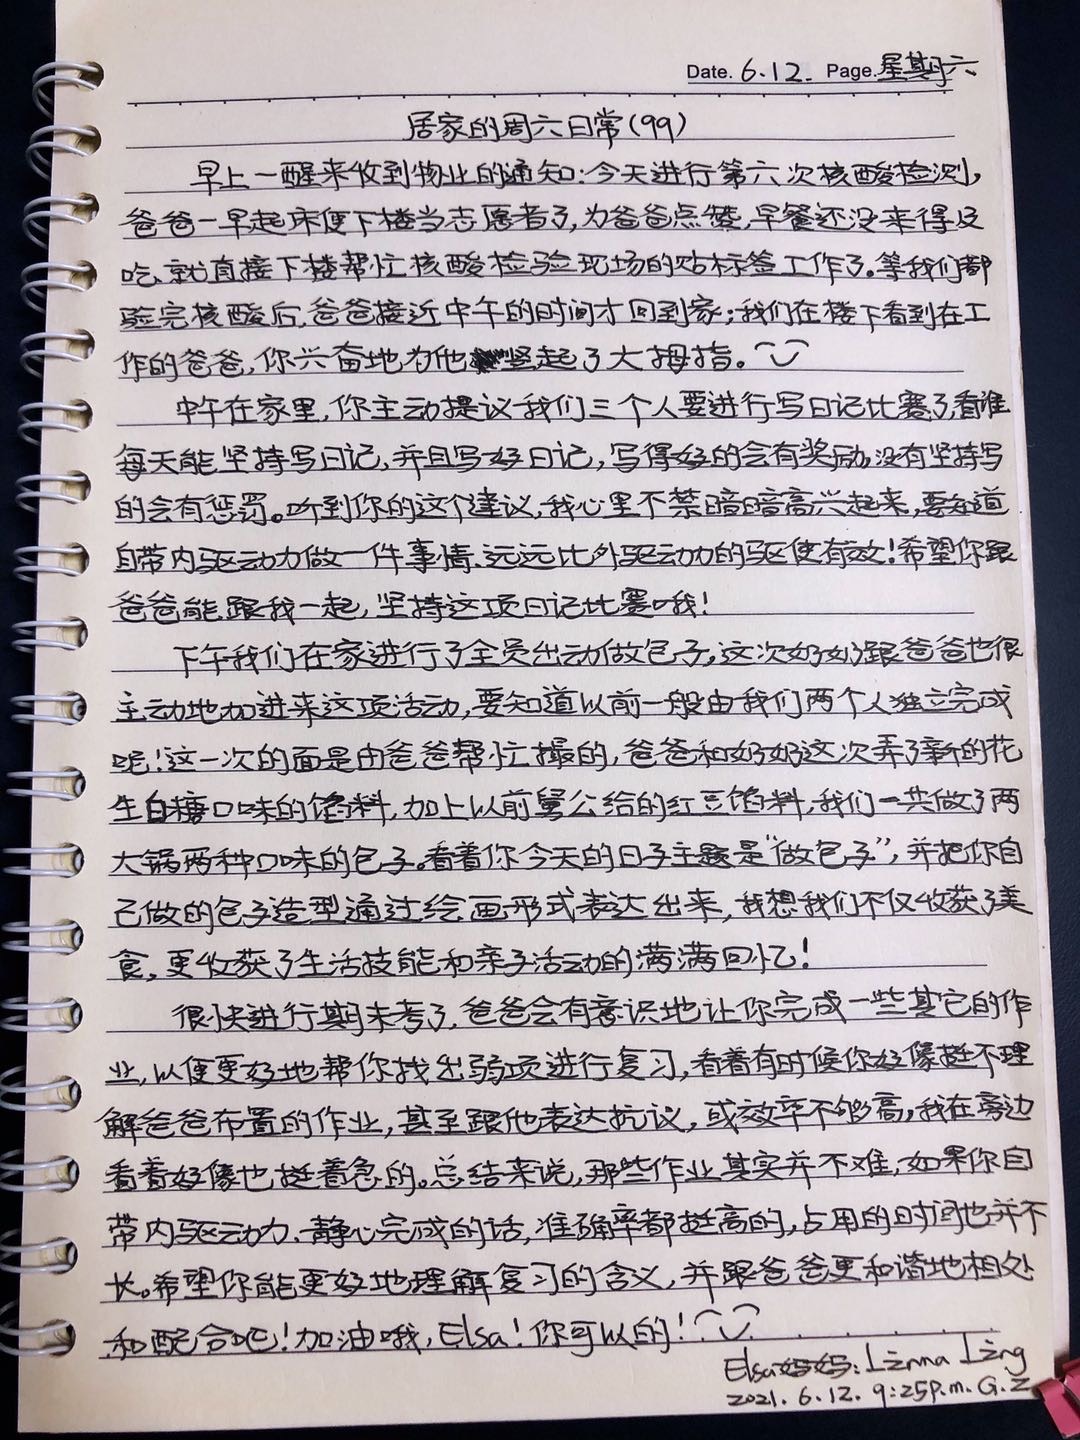 Date. 6.12. Page. 星期六
居家的周六日常(99)
早上一醒来收到物业的通知:今天进行第六次核酸检测,
爸爸一早起床便下楼当志愿者了,为爸爸点赞,早餐还没来得及
吃,就直接下楼帮忙核酸检验现场的贴标签工作了。等我们都
验完核酸后,爸爸接近中午的时间才回到家;我们在楼下看到在工
作的爸爸,你兴奋地为他竖起了大拇指。
中午在家里,你主动提议我们三个人要进行写日记比赛了,看谁
每天能坚持写日记,并且写好日记,写得好的会有奖励,没有坚持写
的会有惩罚。听到你的这个建议,我心里不禁暗暗高兴起来,要知道
自带内驱动力做一件事情,远远比外驱动力的驱使有效!希望你跟
爸爸能跟我一起,坚持这项日记比赛哦!
下午我们在家进行了全员出动做包子,这次奶奶跟爸爸也很
主动地加进来这项活动,要知道以前一般由我们两个人独立完成
呢!这一次的面是由爸爸帮忙撮的,爸爸和奶奶这次弄了新的花
生白糖口味的馅料,加上以前舅公给的红豆馅料,我们一共做了两
大锅两种口味的包子。看着你今天的日子主题是“做包子”,并把你自
己做的包子造型通过绘画形式表达出来,我想我们不仅收获了美
食,更收获了生活技能和亲子活动的满满回忆!
很快进行期末考了,爸爸会有意识地让你完成一些其它的作
业,以便更好地帮你找出弱项进行复习,看着有时候你好像挺不理
解爸爸布置的作业,甚至跟他表达抗议,或效率不够高,我在旁边
看着好像也挺着急的。总结来说,那些作业其实并不难,如果你自
带内驱动力、静心完成的话,准确率都挺高的,占用的时间也并不
长。希望你能更好地理解复习的含义,并跟爸爸更和谐地相处
和配合吧!加油哦,Elsa!你可以的!
Elsa妈妈:Lznna Lzng
2021.6.12. 9:25p.m. G.Z